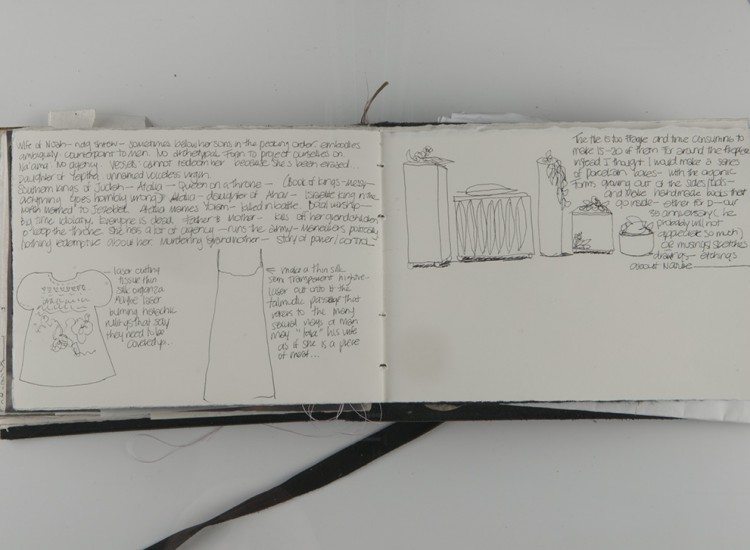 Wife of Noah - not shown - sometimes below her sons in the pecking order embodies
uniquely counterpoint to man. No archetypal form to project ourselves on.
Na'ama No agency Vessel cannot redeem her because she's been erased
Daughter of Yepthe unnamed voiceless virgin.
Southern kings of Judah - Atalia - Queen on a throne - (Book of kings - messy -
everything goes horribly wrong) Atalia - daughter of Ahav - Israelite king in the
North married to Jezebel. Atalia marries Yoram - killed in battle. Baal worship -
By time idolatry. Everyone is dead. Father & Mother - kills off her grandchildren
to keep the throne. She has a lot of agency - runs the army - maneuvers politically
(nothing redemptive about her. Murdering grandmother - story of power/control)
- laser cutting
tissue thin
silk organza
maybe laser
burning halachic
rulings that say
they need to be
covered up..
make a thin silk
semi transparent
laser cut onto it the
talmudic passage that
refers to the many
sexual ways a man
may "take" his wife
as if she is a piece
of meat...
The tile is too fragile and time consuming to
make 15-20 of them for around the fireplace
instead I thought I would make a series
of porcelain boxes - with the organic
forms growing out of the sides/lids -
and make handmade books that
go inside - either for D - our
30 anniversary (he
probably will not
appreciate so much)
or musings sketches
drawings - etchings
about Nature